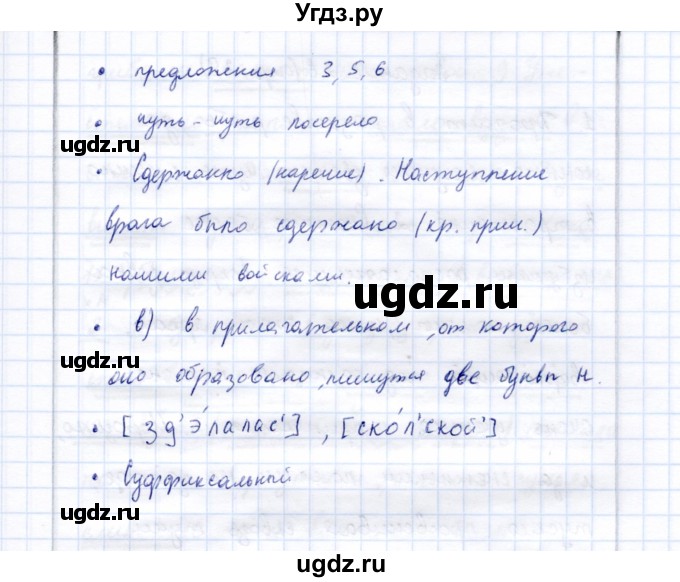 Угдз.ру
• предложения 3, 5, 6
• чуть-чуть посерело
ugdz.ru
• Сдержанно (наречие). Наступление
врага было сдержано (кр. прич.)
нашими войсками.
ugdz.ru
ugdz.ru
• в) в прилагательном, от которого
оно образовано, пишутся две буквы н.
• [зд'э́лалас'], [ско́л'ской']
• Суффиксальный
ugdz.ru
ugdz.ru
Угдз.ру